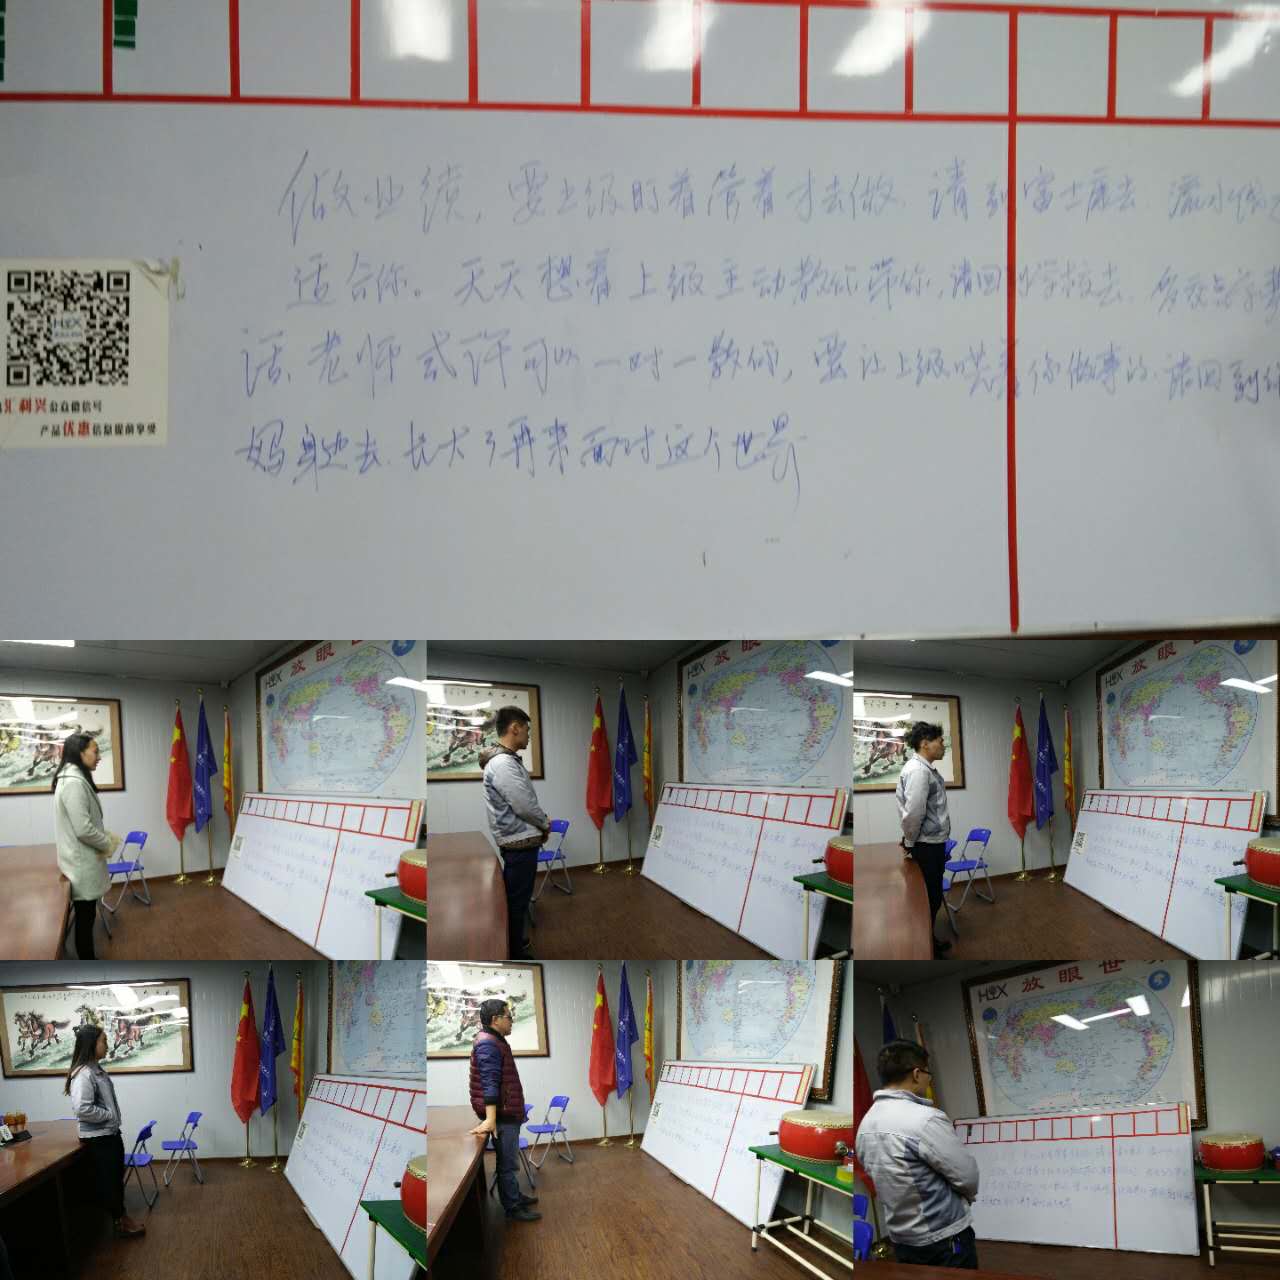 做业绩，要上级盯着管着才去做．请到富士康去．流水线
适合你。天天想着上级主动教你带你，请回学校去．多交点学费
话、老师或许可以一对一教你，要让上级哄着你做事的．请回到
妈身边去．长大了再来面对这个世界
HLX
汇利兴公众微信号
产品优惠信息提前享受
放眼
放眼
HLX 放眼世